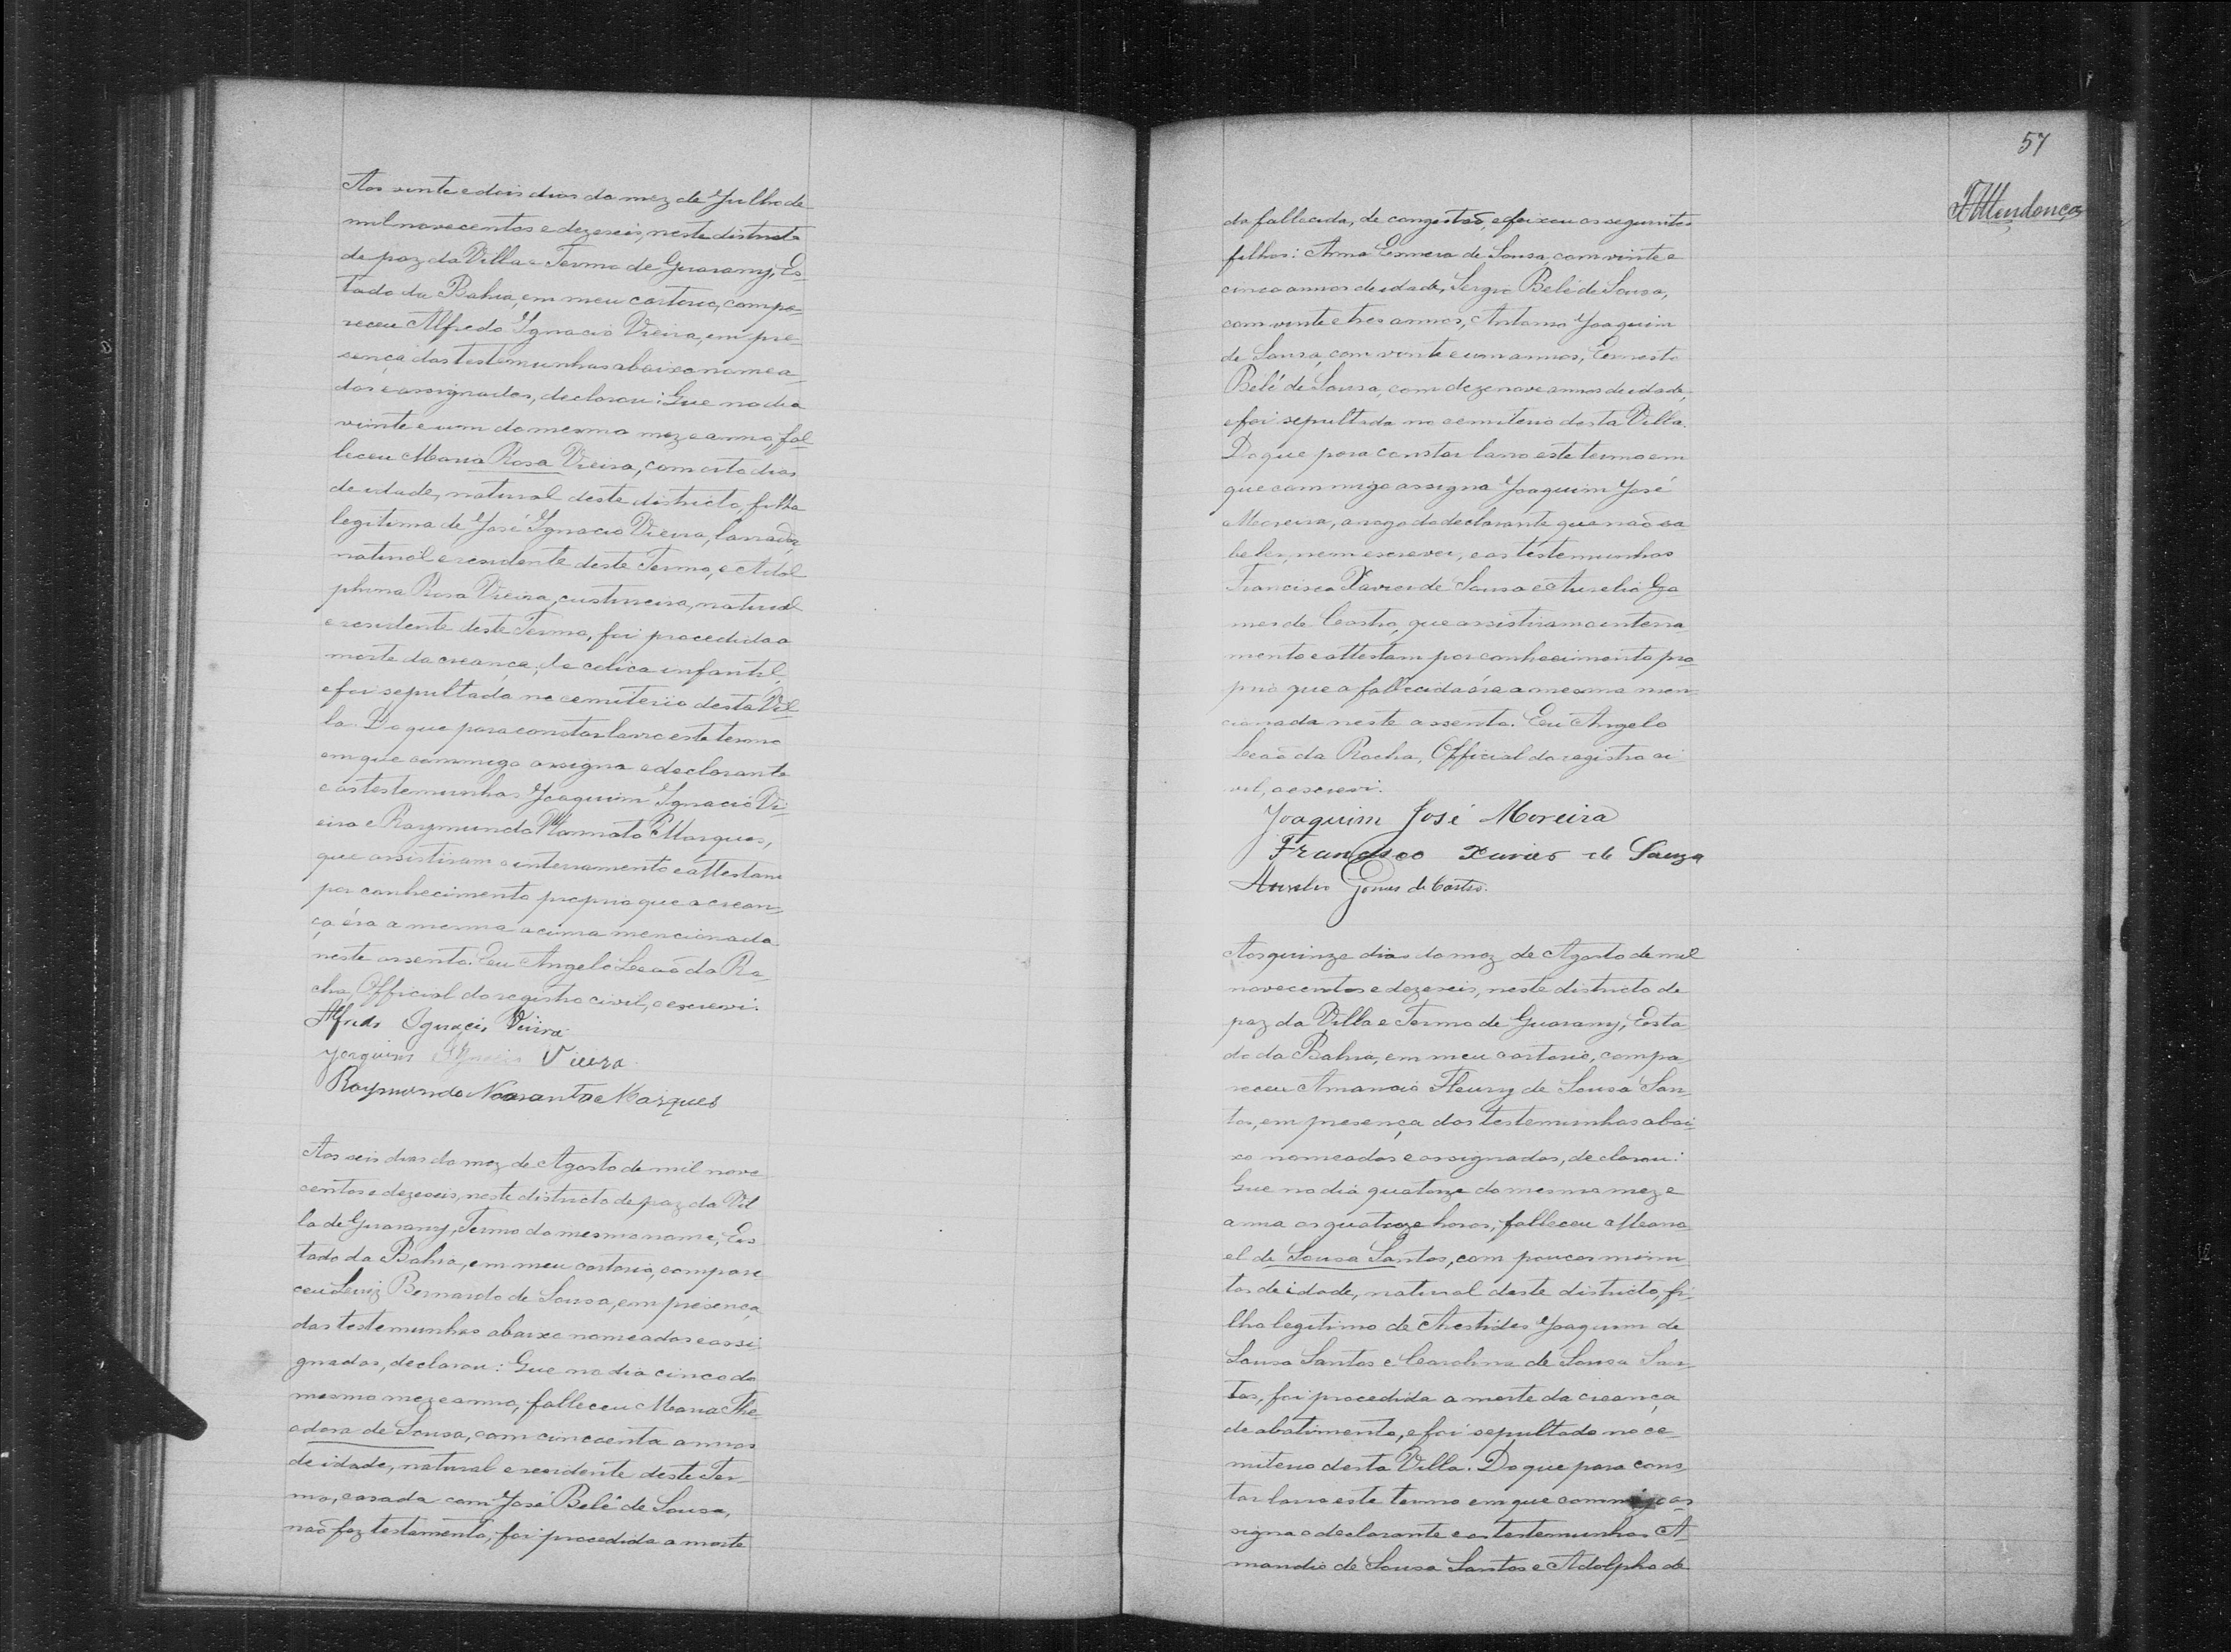 Aos vinte e dois dias do mez de Julho de
mil novecentos e dezeseis, neste districto
de paz da Villa e Termo de Guarany, Es-
tado da Bahia, em meu cartorio, compa-
receu Alfredo Ignacio Vieira, em pre-
sença das testemunhas abaixo nomea-
das e assignadas, declarou: Que no dia
vinte e um do mesmo mez e anno, fal-
leceu Maria Rosa Vieira, com oito dias
de idade, natural deste districto, filha
legitima de José Ignacio Vieira, lavrador,
natural e residente deste Termo, e Adol-
phina Rosa Vieira, custureira, natural
e residente deste Termo, foi procedida a
morte da creança, de colica infantil,
e foi sepultada no cemiterio desta Vil-
la. Do que para constar lavro este termo
em que commigo assigna o declarante
e as testemunhas Joaquim Ignacio Vi-
eira e Raymundo Nonnato Marques,
que assistiram o enterramento e attestam
por conhecimento proprio que a crean-
ça éra a mesma acima mencionada
neste assento. Eu Angelo Leão da Ro-
cha, Official do registro civil, o escrevi.
Alfredo Ignacio Vieira
Joaquim Ignacio Vieira
Raymundo Nonanto Marques
Aos seis dias do mez de Agosto de mil nove
centos e dezeseis, neste districto de paz da Vil
la de Guarany, Termo do mesmo nome, Es
tado da Bahia, em meu cartorio, compare
ceu Luiz Bernardo de Sousa, em presença
das testemunhas abaixo nomeadas e assi
gnadas, declarou: Que no dia cinco do
mesmo mez e anno, falleceu Maria The-
odora de Sousa, com cincoenta annos
de idade, natural e residente deste Ter-
mo, casada com José Belé de Sousa,
não fez testamento, foi procedida a morte
57
da fallecida, de congestão, e deixou os seguintes
filhos: Anna de Sousa, com vinte e
cinco annos de idade, Sergio Belé de Sousa,
com vinte e tres annos, Antonio Joaquim
de Sousa, com vinte e um annos, Ernesto
Belé de Sousa, com dezenove annos de idade,
e foi sepultada no cemiterio desta Villa.
Do que para constar lavro este termo em
que commigo assigna Joaquim José
Moreira, a rogo do declarante que não sa
be ler, nem escrever, e as testemunhas
Francisco Xavier de Sousa e Aurelio Go
mes de Castro, que assistiram o enterra-
mento e attestam por conhecimento pro-
prio que a fallecida éra a mesma men-
cionada neste assento. Eu Angelo
Leão da Rocha, Official do registro ci
vil, o escrevi.
Joaquim José Moreira
Francisco Xavier de Souza
Aurelio Gomes de Castro.
Aos quinze dias do mez de Agosto de mil
novecentos e dezeseis, neste districto de
paz da Villa e Termo de Guarany, Esta
do da Bahia, em meu cartorio, compa
receu Amancio Fleury de Sousa San-
tos, em presença das testemunhas abai-
xo nomeadas e assignadas, declarou:
Que no dia quatorze do mesmo mez e
anno as quatroze horas, falleceu Mano
el de Sousa Santos, com poucos minu
tos de idade, natural deste districto, fi-
lho legitimo de Aristides Joaquim de
Sousa Santos e Carolina de Sousa San-
tos, foi procedida a morte da creança
de abatimento, e foi sepultado no ce-
miterio desta Villa. Do que para cons-
tar lavro este termo em que commigo as
signa o declarante e as testemunhas A-
mandio de Sousa Santos e Adolpho de